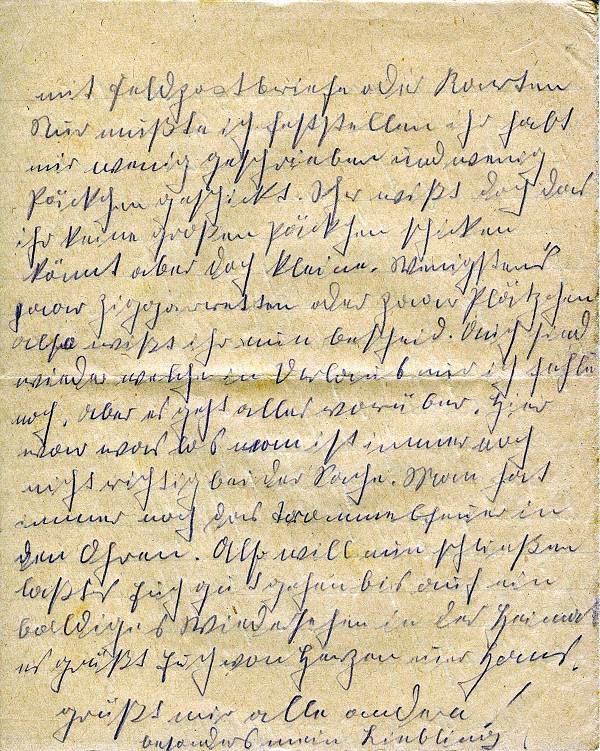 mit Feldpostbriefe oder Karten
Nur mußte ich feststellen ihr habt
mir wenig geschrieben und wenig
Päckchen geschickt. Ihr wißt doch das
ihr keine großen Päckchen schicken
könnt aber doch kleine. Wenigstens
paar Ziggarretten oder paar Plätzchen
also wißt ihr nun bescheid. Auch sind
wieder welche in Urlaub nur ich fehle
noch, aber es geht alles vorüber. Hier
war was los man ist immer noch
nicht richtig bei der Sache. Man hat
immer noch das Trommelfeuer in
den Ohren. Also will nun schließen
laßts Euch gut gehen bis auf ein
baldiges Wiedersehen in der Heimat
es grüßt Euch von Herzen euer Hans.
grüßt mir alle andern!
besonders mein Liebling